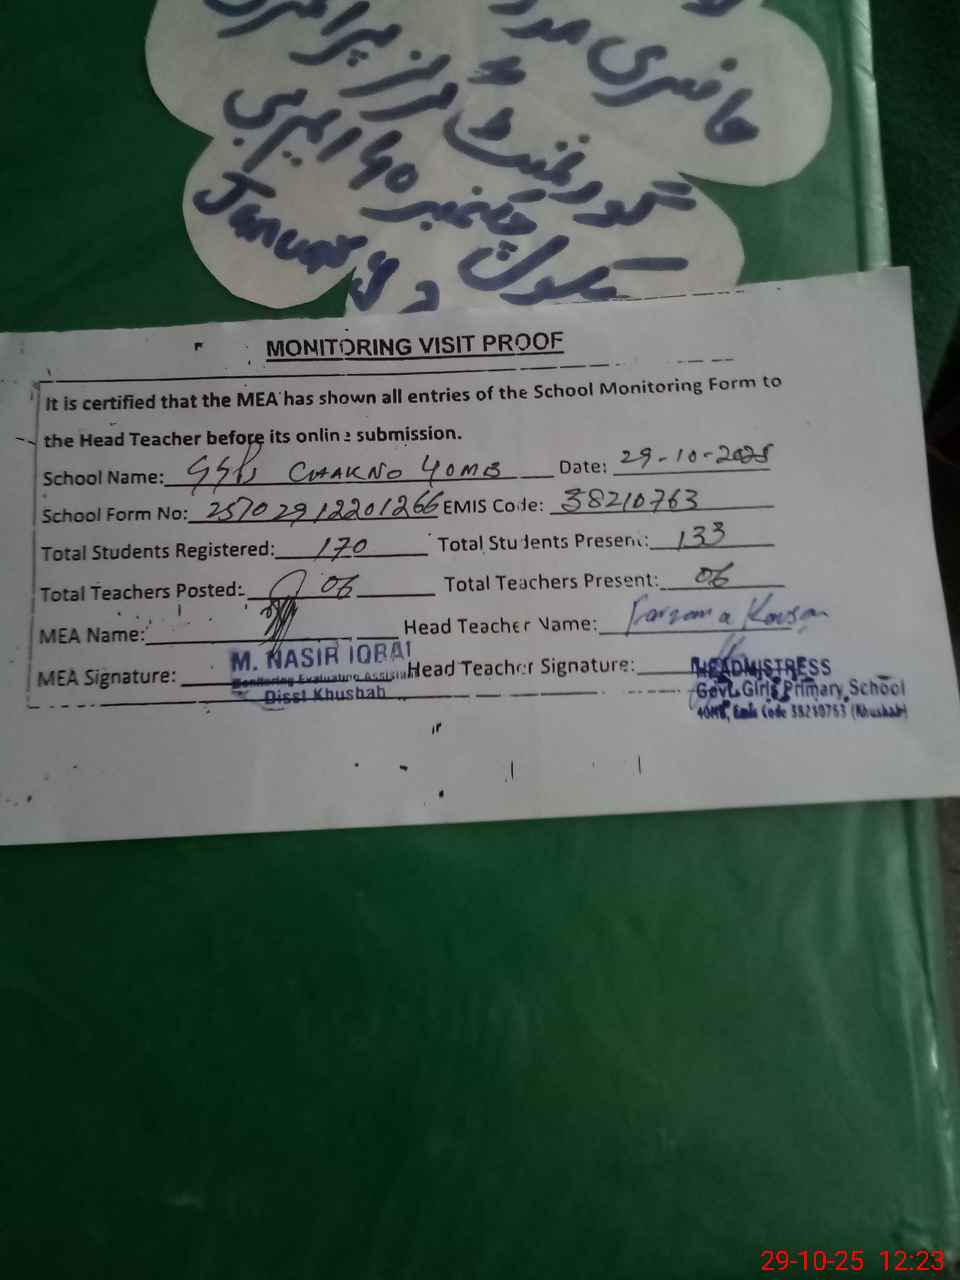 حاضری
گورنمنٹ گرلز پرائمری
سکول چک نمبر 40 ایم بی
January
MONITORING VISIT PROOF
It is certified that the MEA has shown all entries of the School Monitoring Form to
the Head Teacher before its online submission.
School Name: GGPS CHAK NO 40MB Date: 29-10-2025
School Form No: 25702912201266 EMIS Code: 38210763
Total Students Registered: 170 Total Students Present: 133
Total Teachers Posted: 06 Total Teachers Present: 06
MEA Name: Head Teacher Name: Farzana Kousar
MEA Signature: M. NASIR IQBAL Head Teacher Signature: HEADMISTRESS
Monitoring Evaluating Assistant Govt. Girls Primary School
Disst Khushab 40MB, Emis Code 38210763 (Khushab)
29-10-25 12:23